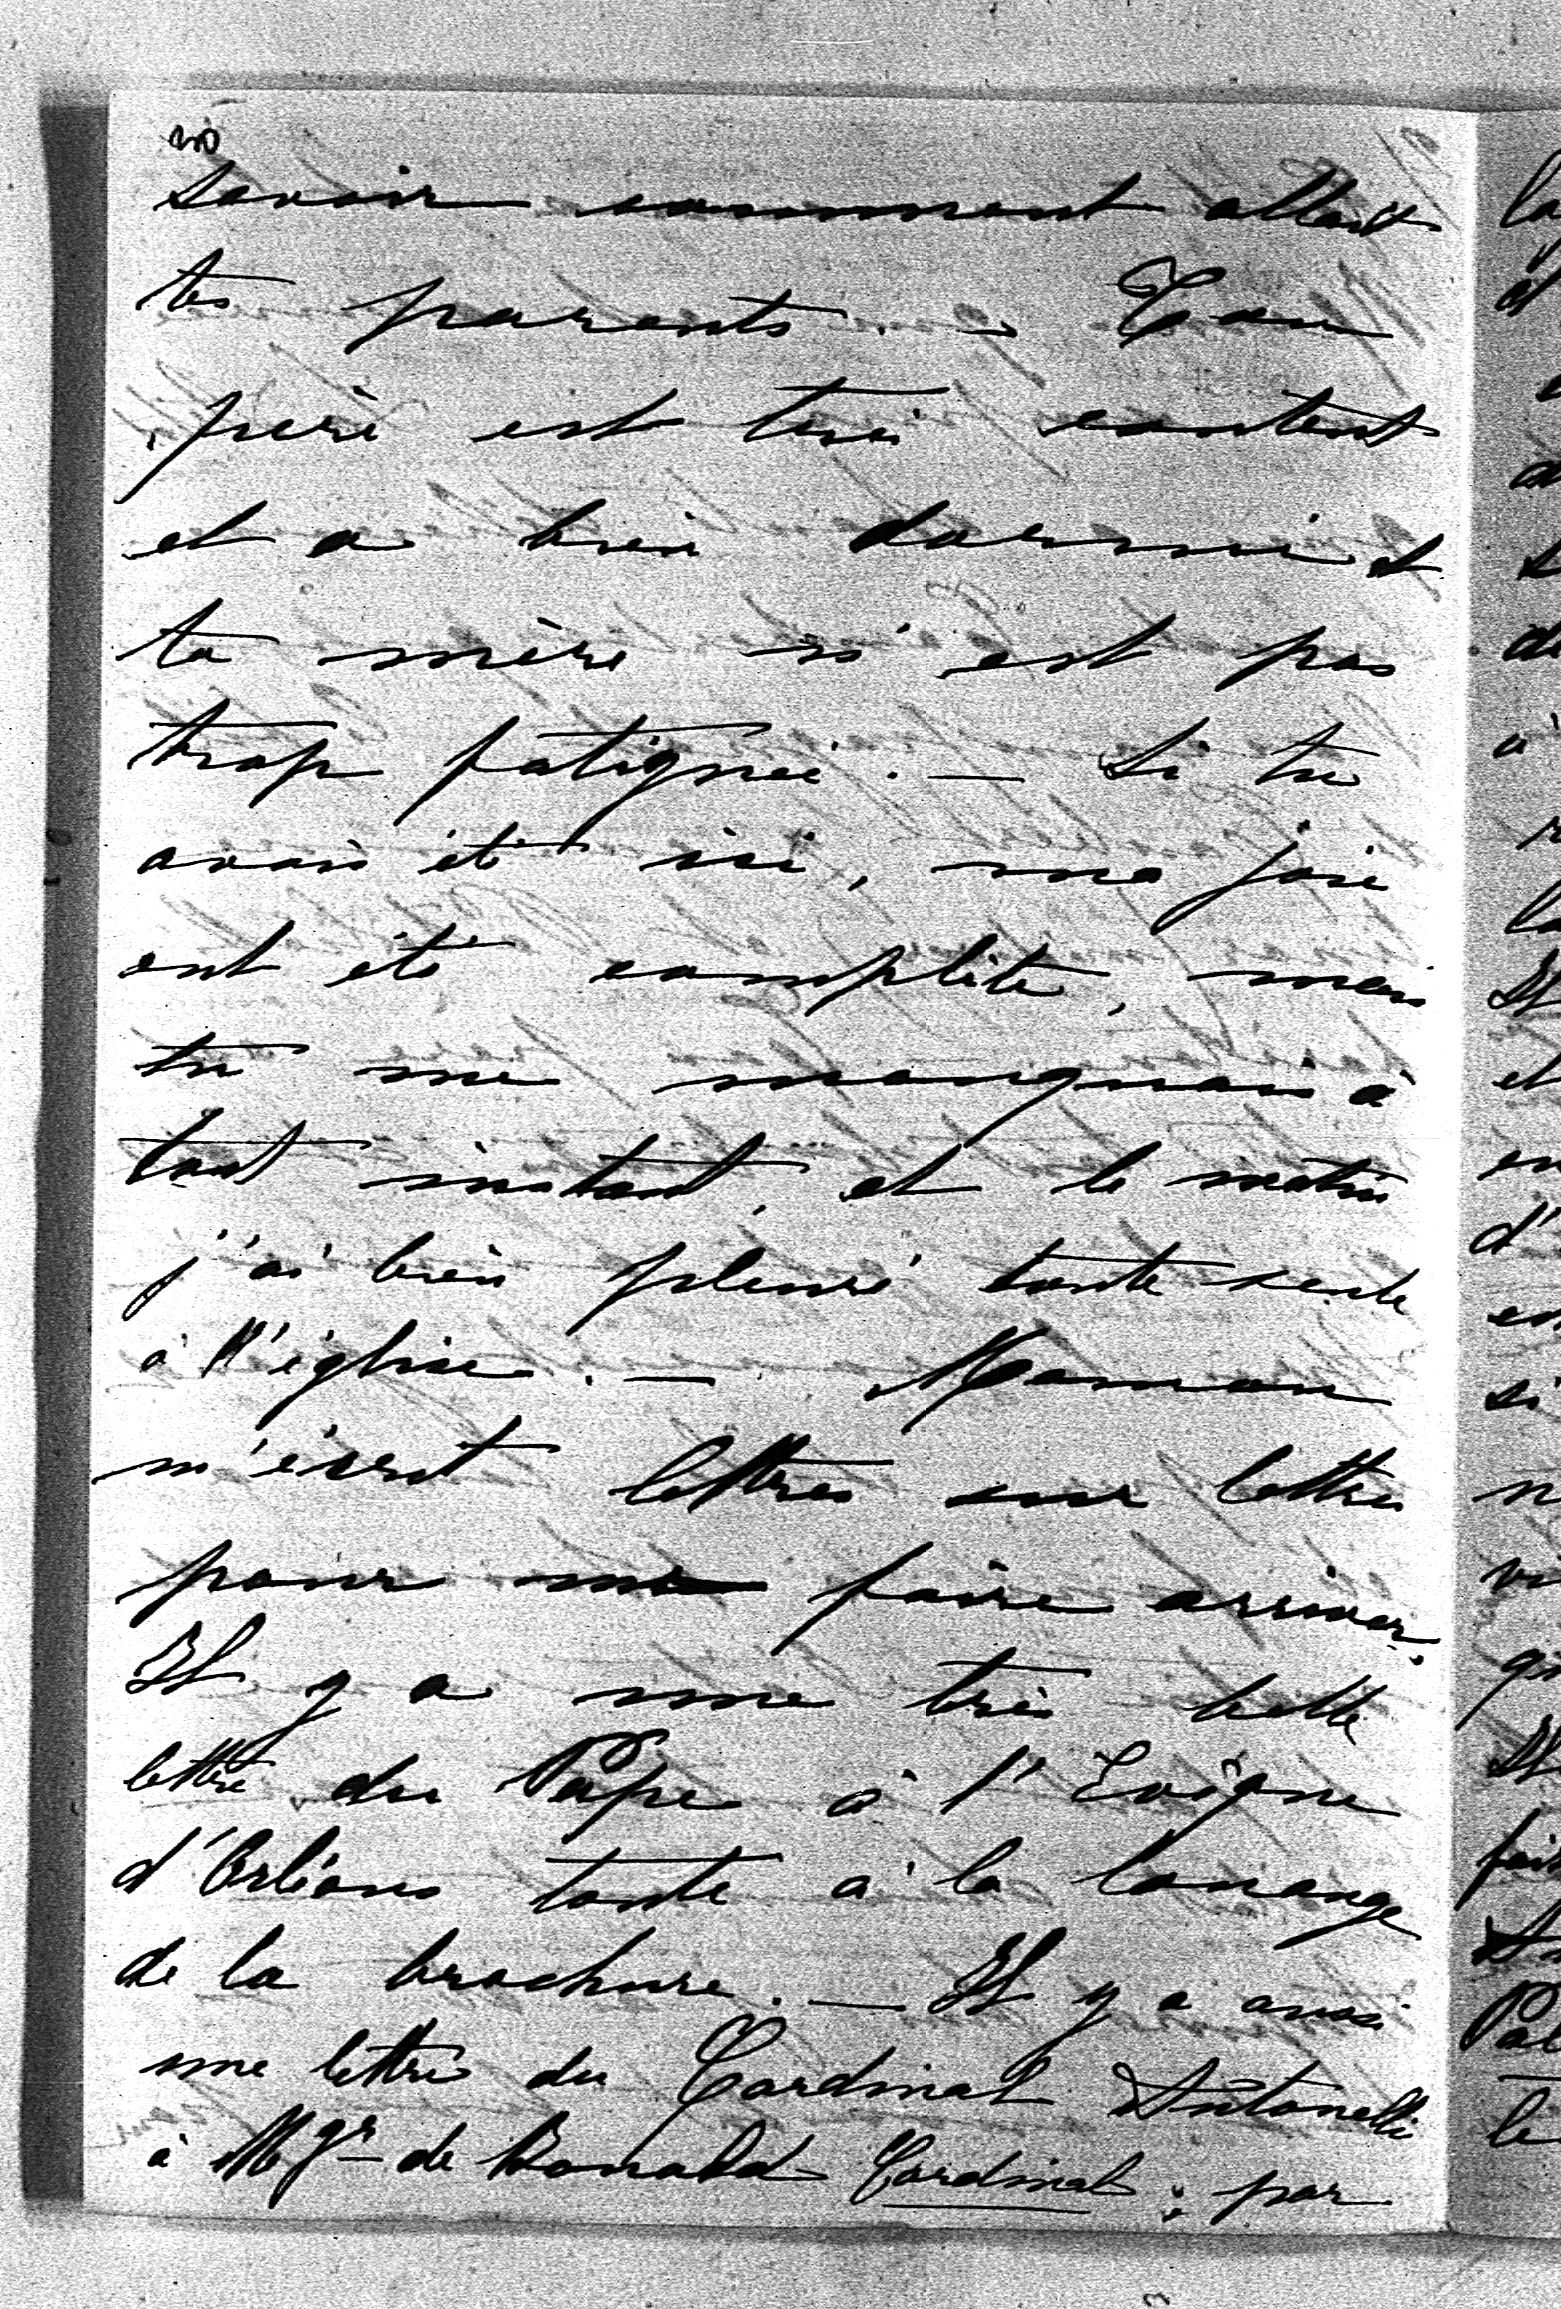 savoir comment allait
tes parents. — Ton
père est très content
et a bien dormi et
ta mère n'est pas
trop fatiguée. — Si tu
avais été ici, ma joie
eut été complète, mais
tu me manquais à
tout instant, et le matin
j'ai bien pleuré toute seule
à l'église. — Maman
m'écrit lettres sur lettres
pour me faire arriver.
Il y a une très belle
lettre du Pape à l'Evêque
d'Orléans toute à la louange
de la brochure. — Il y a aussi
une lettre du Cardinal Antonelli
à Mgr de Bonald Cardinal; par